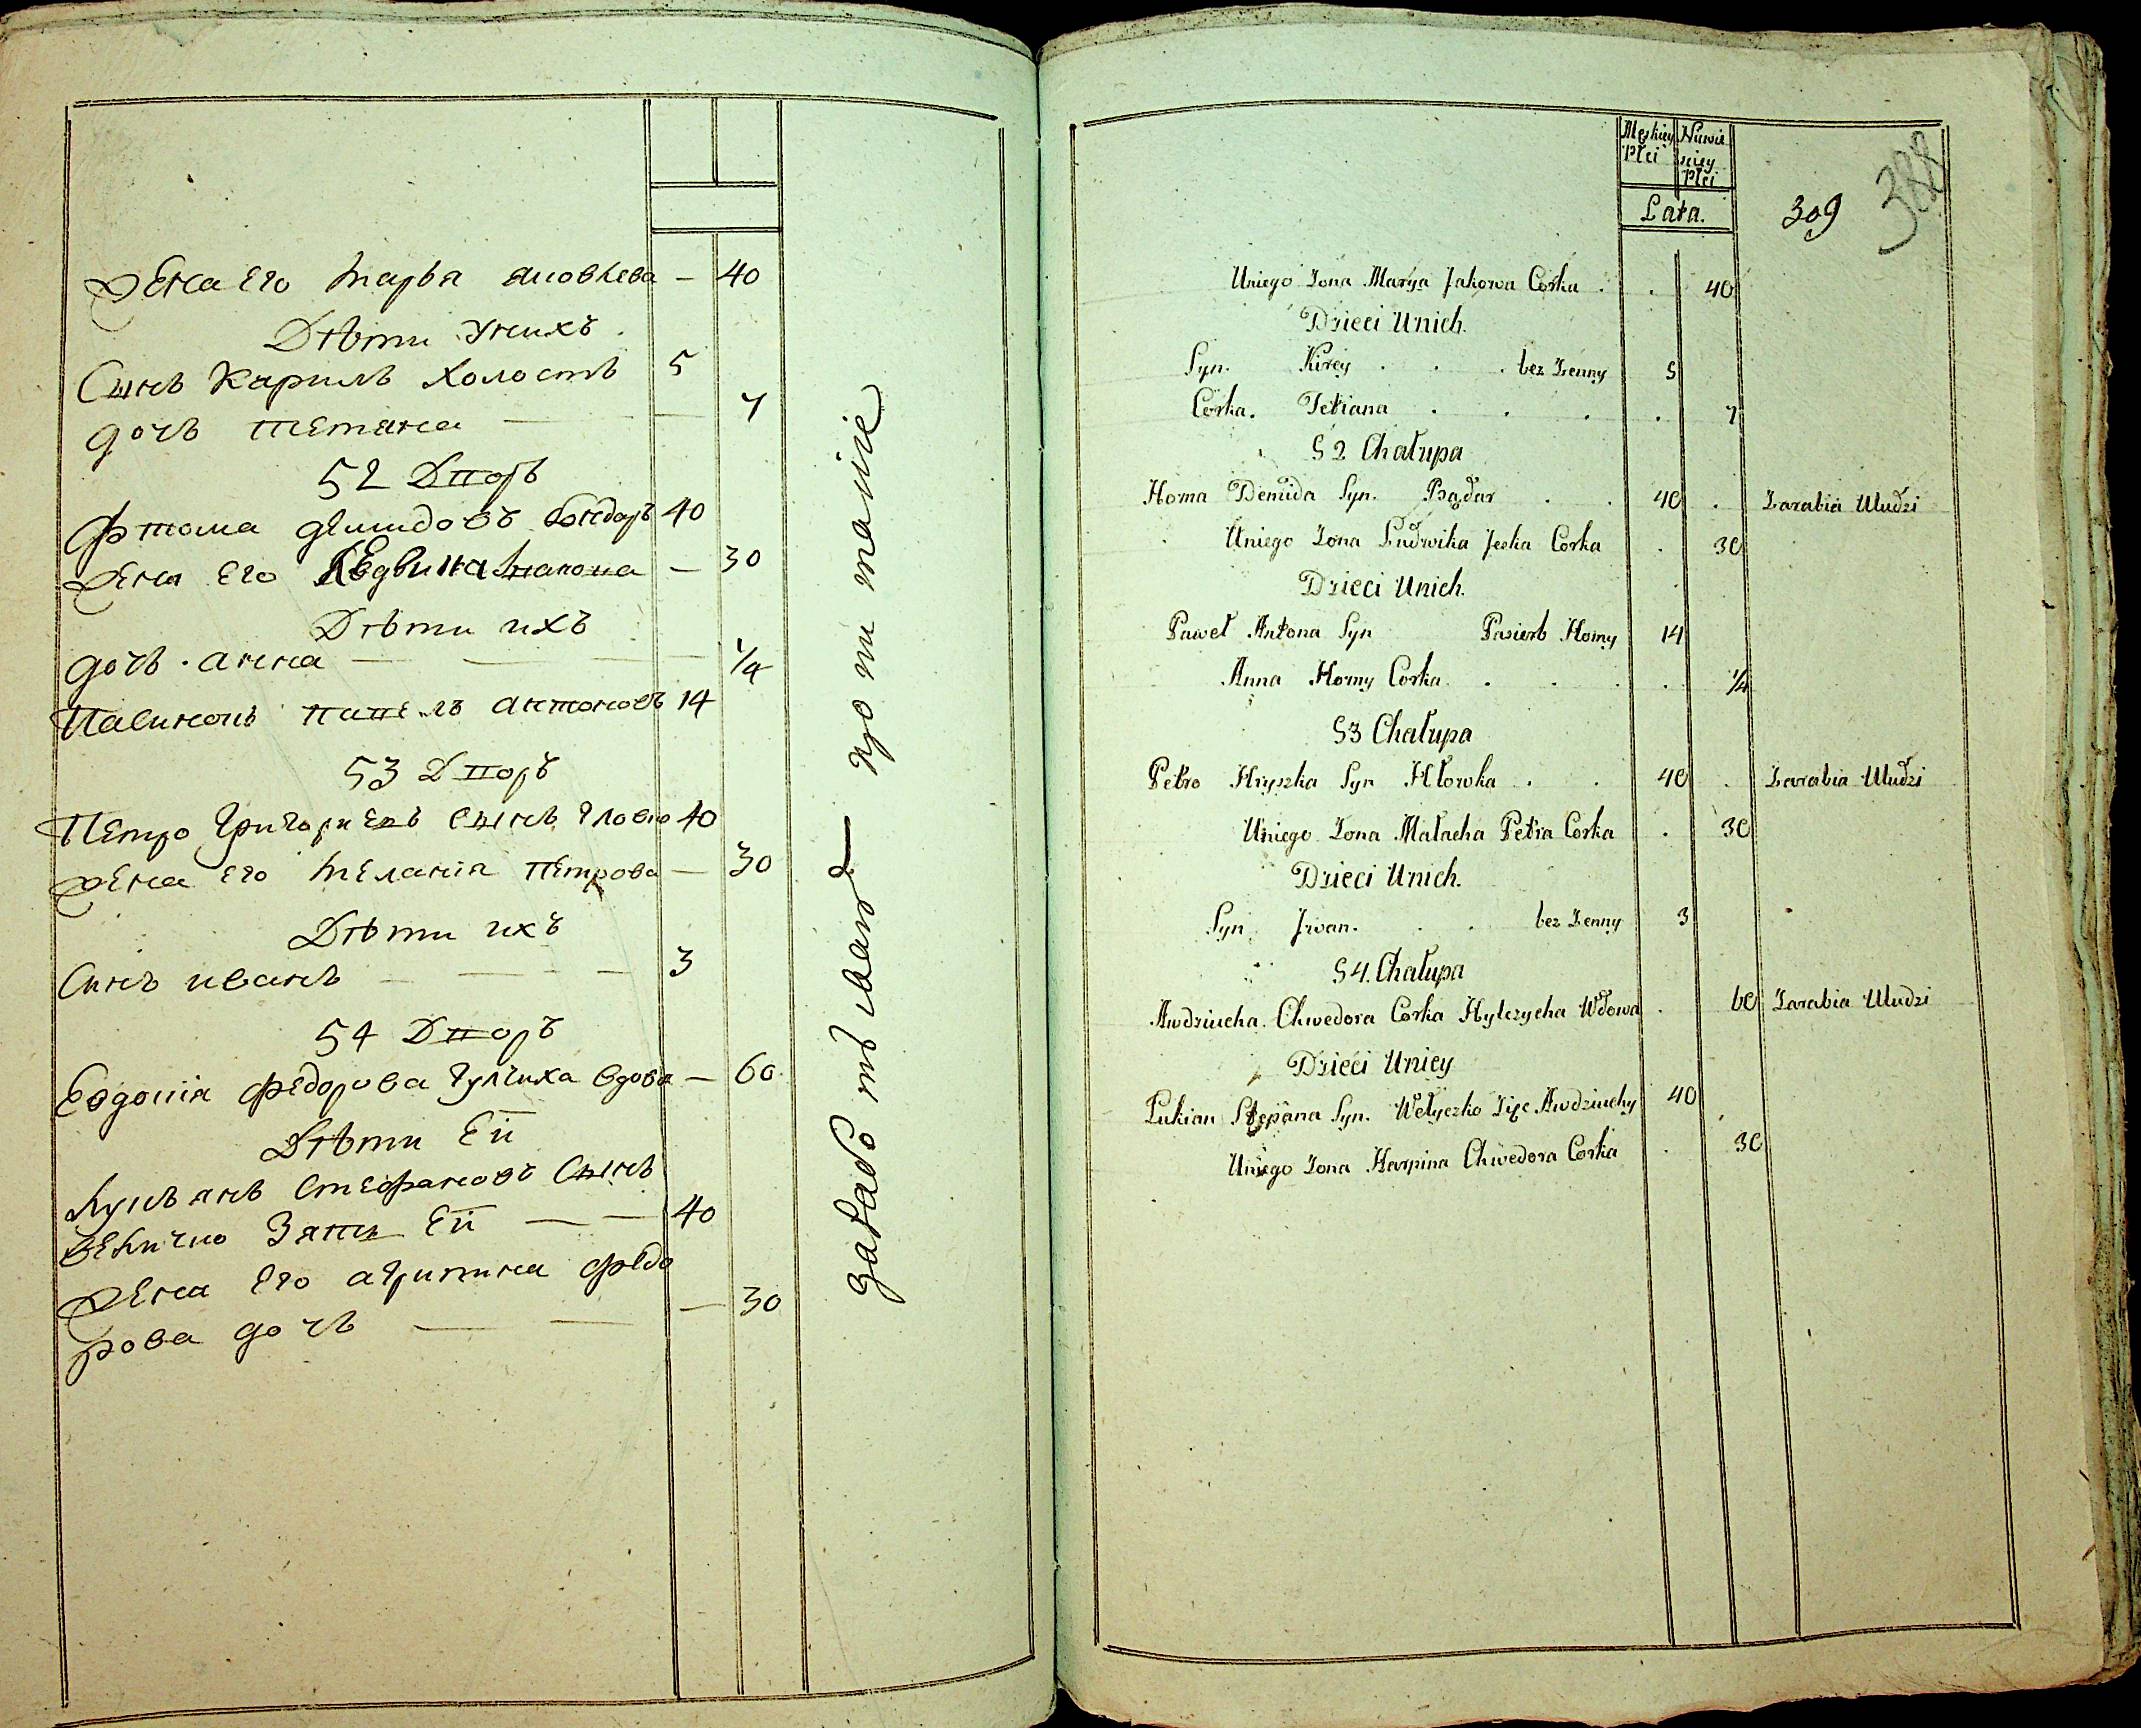 Жена его Марья Яковлева — 40
Дѣти у нихъ
Сынъ Кирилъ холостъ 5
дочь Тетяна — 7
52 Дворъ
Фтома Демидовъ Бондаръ 40
Жена его — 30
Дѣти ихъ
дочь Анна — 1/4
Пасинокъ Павелъ Антоновъ 14
53 Дворъ
Петро Григориевъ Сынъ 40
Жена его Меланія Петрова — 30
Дѣти ихъ
Синъ Иванъ — 3
54 Дворъ
Евдокія Федорова Гулчиха вдова — 60
Дѣти Еи
Лукъянъ Стефановъ Сынъ
Величко Зять Еи — 40
Жена Его Агрипина Федо
рова дочь — 30
Męskiey Płci
Niewie sciey Płci
Lata.
309
388
Uniego Zona Marya Jakowa Corka . . 40
Dzieci Unich.
Syn. Kirey . . . bez Zenny 5
Corka. Tetiana . . . . 7
52 Chałupa
Homa Demida Syn. Bądar . . 40 . Zarabia Uludzi
Uniego Zona Ludwika Jeska Corka . 30
Dzieci Unich.
Paweł Antona Syn Pasierb Homy 14
Anna Homy Corka . . . . 1/4
53 Chałupa
Petro Hryszka Syn Hłowka . . 40 . Zarabia Uludzi
Uniego Zona Małacha Petra Corka . 30
Dzieci Unich.
Syn Jwan. . . bez Zenny 3
54. Chałupa
Awdziucha. Chwedora Corka Hylczycha Wdowa . 60 Zarabia Uludzi
Dzieci Uniey
Łukian Stepana Syn. Wełyczko Zięc Awdziuchy 40 .
Uniego Zona Harpina Chwedora Corka . 30